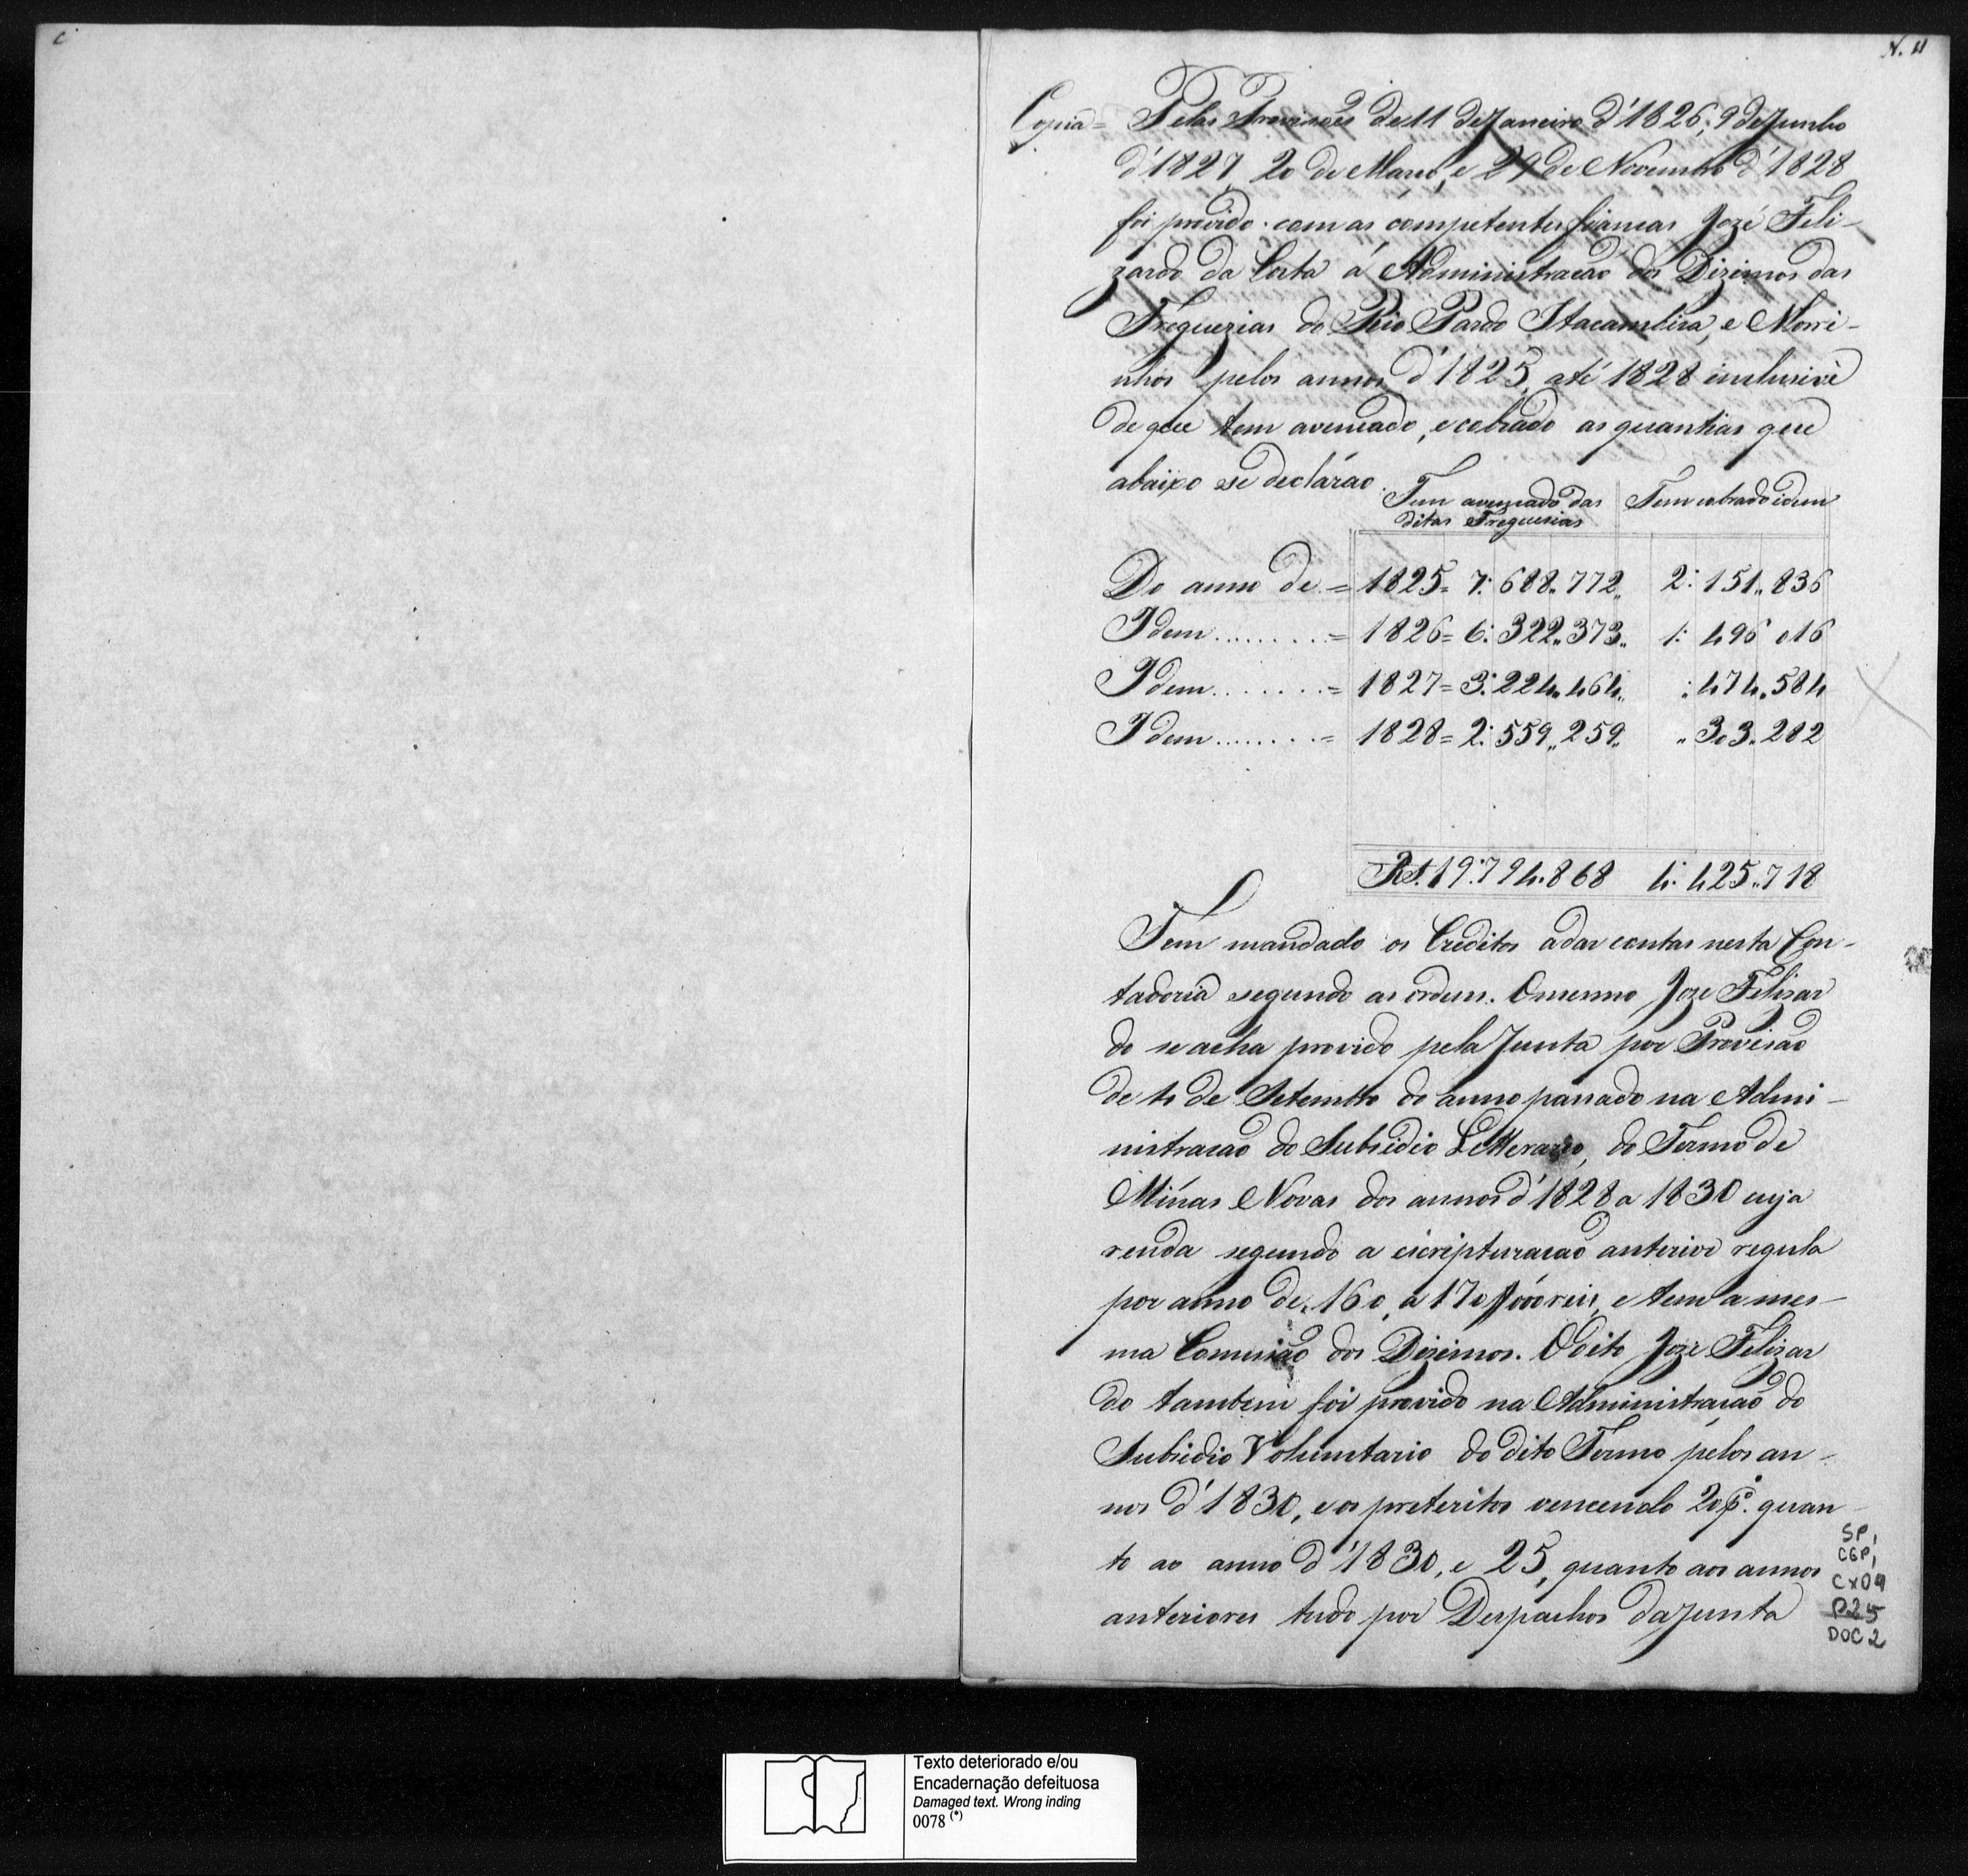 N. 11
Copia = Pelas Provisoẽs de 11 de Janeiro d'1826, 9 de Junho
d'1827, 20 de Março, e 29 de Novembro d'1828
foi provido com as competentes fiancas Jozé Feli-
zardo da Costa á Administracaõ dos Dizimos das
Freguezias do Rio Pardo Itacambira, e Morri-
nhos pelos annos d'1825, até 1828 inclusive
de que tem avensado, e cobrado as quantias que
abaixo se declárão.
Tem avensado das ditas Freguesias
Tem cobrado idem
Do anno de = 1825 = 7: 688.. 772.. 2: 151.. 836
Idem ........ = 1826 = 6: 322.. 373.. 1: 496 016
Idem ........ = 1827 = 3: 224.. 464.. : 474.. 584
Idem ........ = 1828 = 2: 559.. 259.. .. 303.. 282
Rs. 19: 794.. 868 4: 425.. 718
Tem mandado os Creditos a dar contas nesta Con-
tadoria segundo as ordens. O mesmo Joze Felizar
do se acha provido pela Junta por Provisaõ
de 4 de Setembro do anno passado na Admi-
nistracaõ do Subsidio Litterario, do Termo de
Minas Novas dos annos d'1828 a 1830 cuja
renda segundo a escripturacaõ anterior regula
por anno de, 160, a 170$000 reis, e tem a mes-
ma Comissaõ dos Dizimos. O dito Joze Felizar
do tambem foi provido na Administracaõ do
Subsidio Voluntario do dito Termo pelos an-
nos d'1830, e os preteritos vencendo 20 p.º quan-
to ao anno d'1830, e 25, quanto aos annos
anteriores tudo por Despachos da Junta
SP,
CGP,
CX04
P.25
DOC 2
Texto deteriorado e/ou
Encadernação defeituosa
Damaged text. Wrong inding
0078 (*)